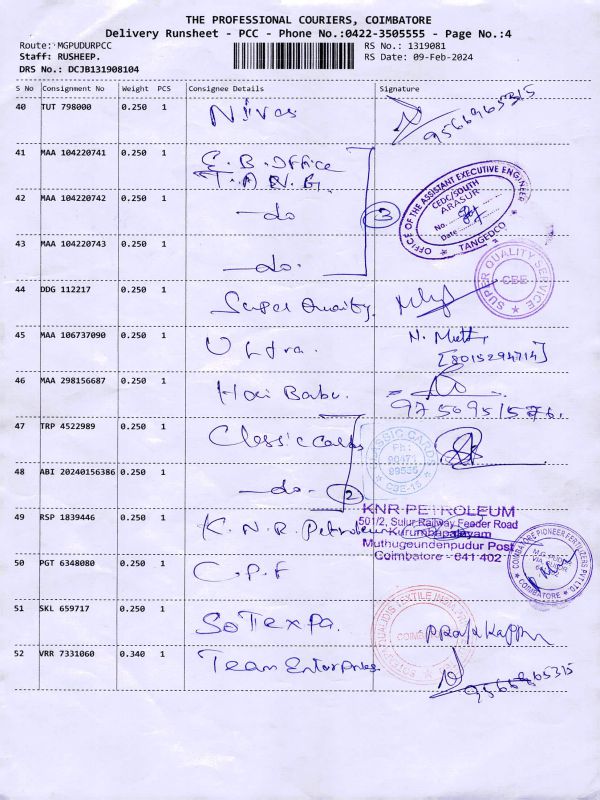 THE PROFESSIONAL COURIERS, COIMBATORE
Delivery Runsheet - PCC - Phone No.:0422-3505555 - Page No.:4
Route: MGPUDURPCC RS No.: 1319081
Staff: RUSHEEP. RS Date: 09-Feb-2024
DRS No.: DCJB131908104
S No Consignment No Weight PCS Consignee Details Signature
40 TUT 798000 0.250 1 Nivas 9566965315
41 MAA 104220741 0.250 1 E.B. Office
T.A.N.G.
42 MAA 104220742 0.250 1 —do 3
OFFICE OF THE ASSISTANT EXECUTIVE ENGINEER
CEDC/SOUTH
ARASUR
No.
Date
TANGEDCO
43 MAA 104220743 0.250 1 —do.
44 DDG 112217 0.250 1 Super Quality.
SUPER QUALITY SERVICE
CBE
45 MAA 106737090 0.250 1 Ultra. N. Muth
[8015294714]
46 MAA 298156687 0.250 1 Hari Babu.
47 TRP 4522989 0.250 1 Classic Cards
CLASSIC CARDS
CBE-15
48 ABI 20240156386 0.250 1 —do. 2
49 RSP 1839446 0.250 1 K.N.R. Petroleum
KNR PETROLEUM
501/2, Sulur Railway Feeder Road
Kurumbapalayam
Muthugeundenpudur Post
Coimbatore - 641 402
50 PGT 6348080 0.250 1 C.P.F
COIMBATORE PIONEER FERTILIZERS PVT LTD
COIMBATORE
51 SKL 659717 0.250 1 SoTexpa.
52 VRR 7331060 0.340 1 Team Enterprises 9566965315